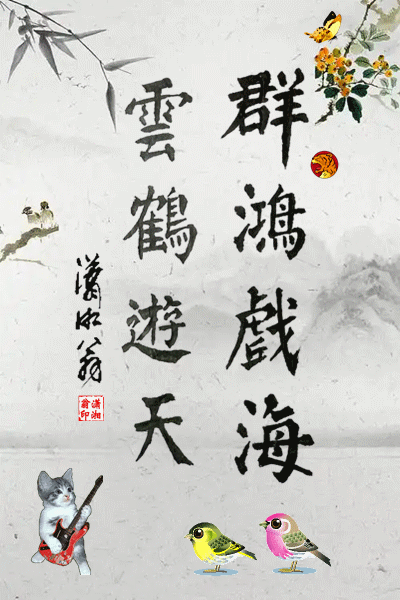 群鴻戲海
雲鶴遊天
瀟湘翁
瀟湘
翁印